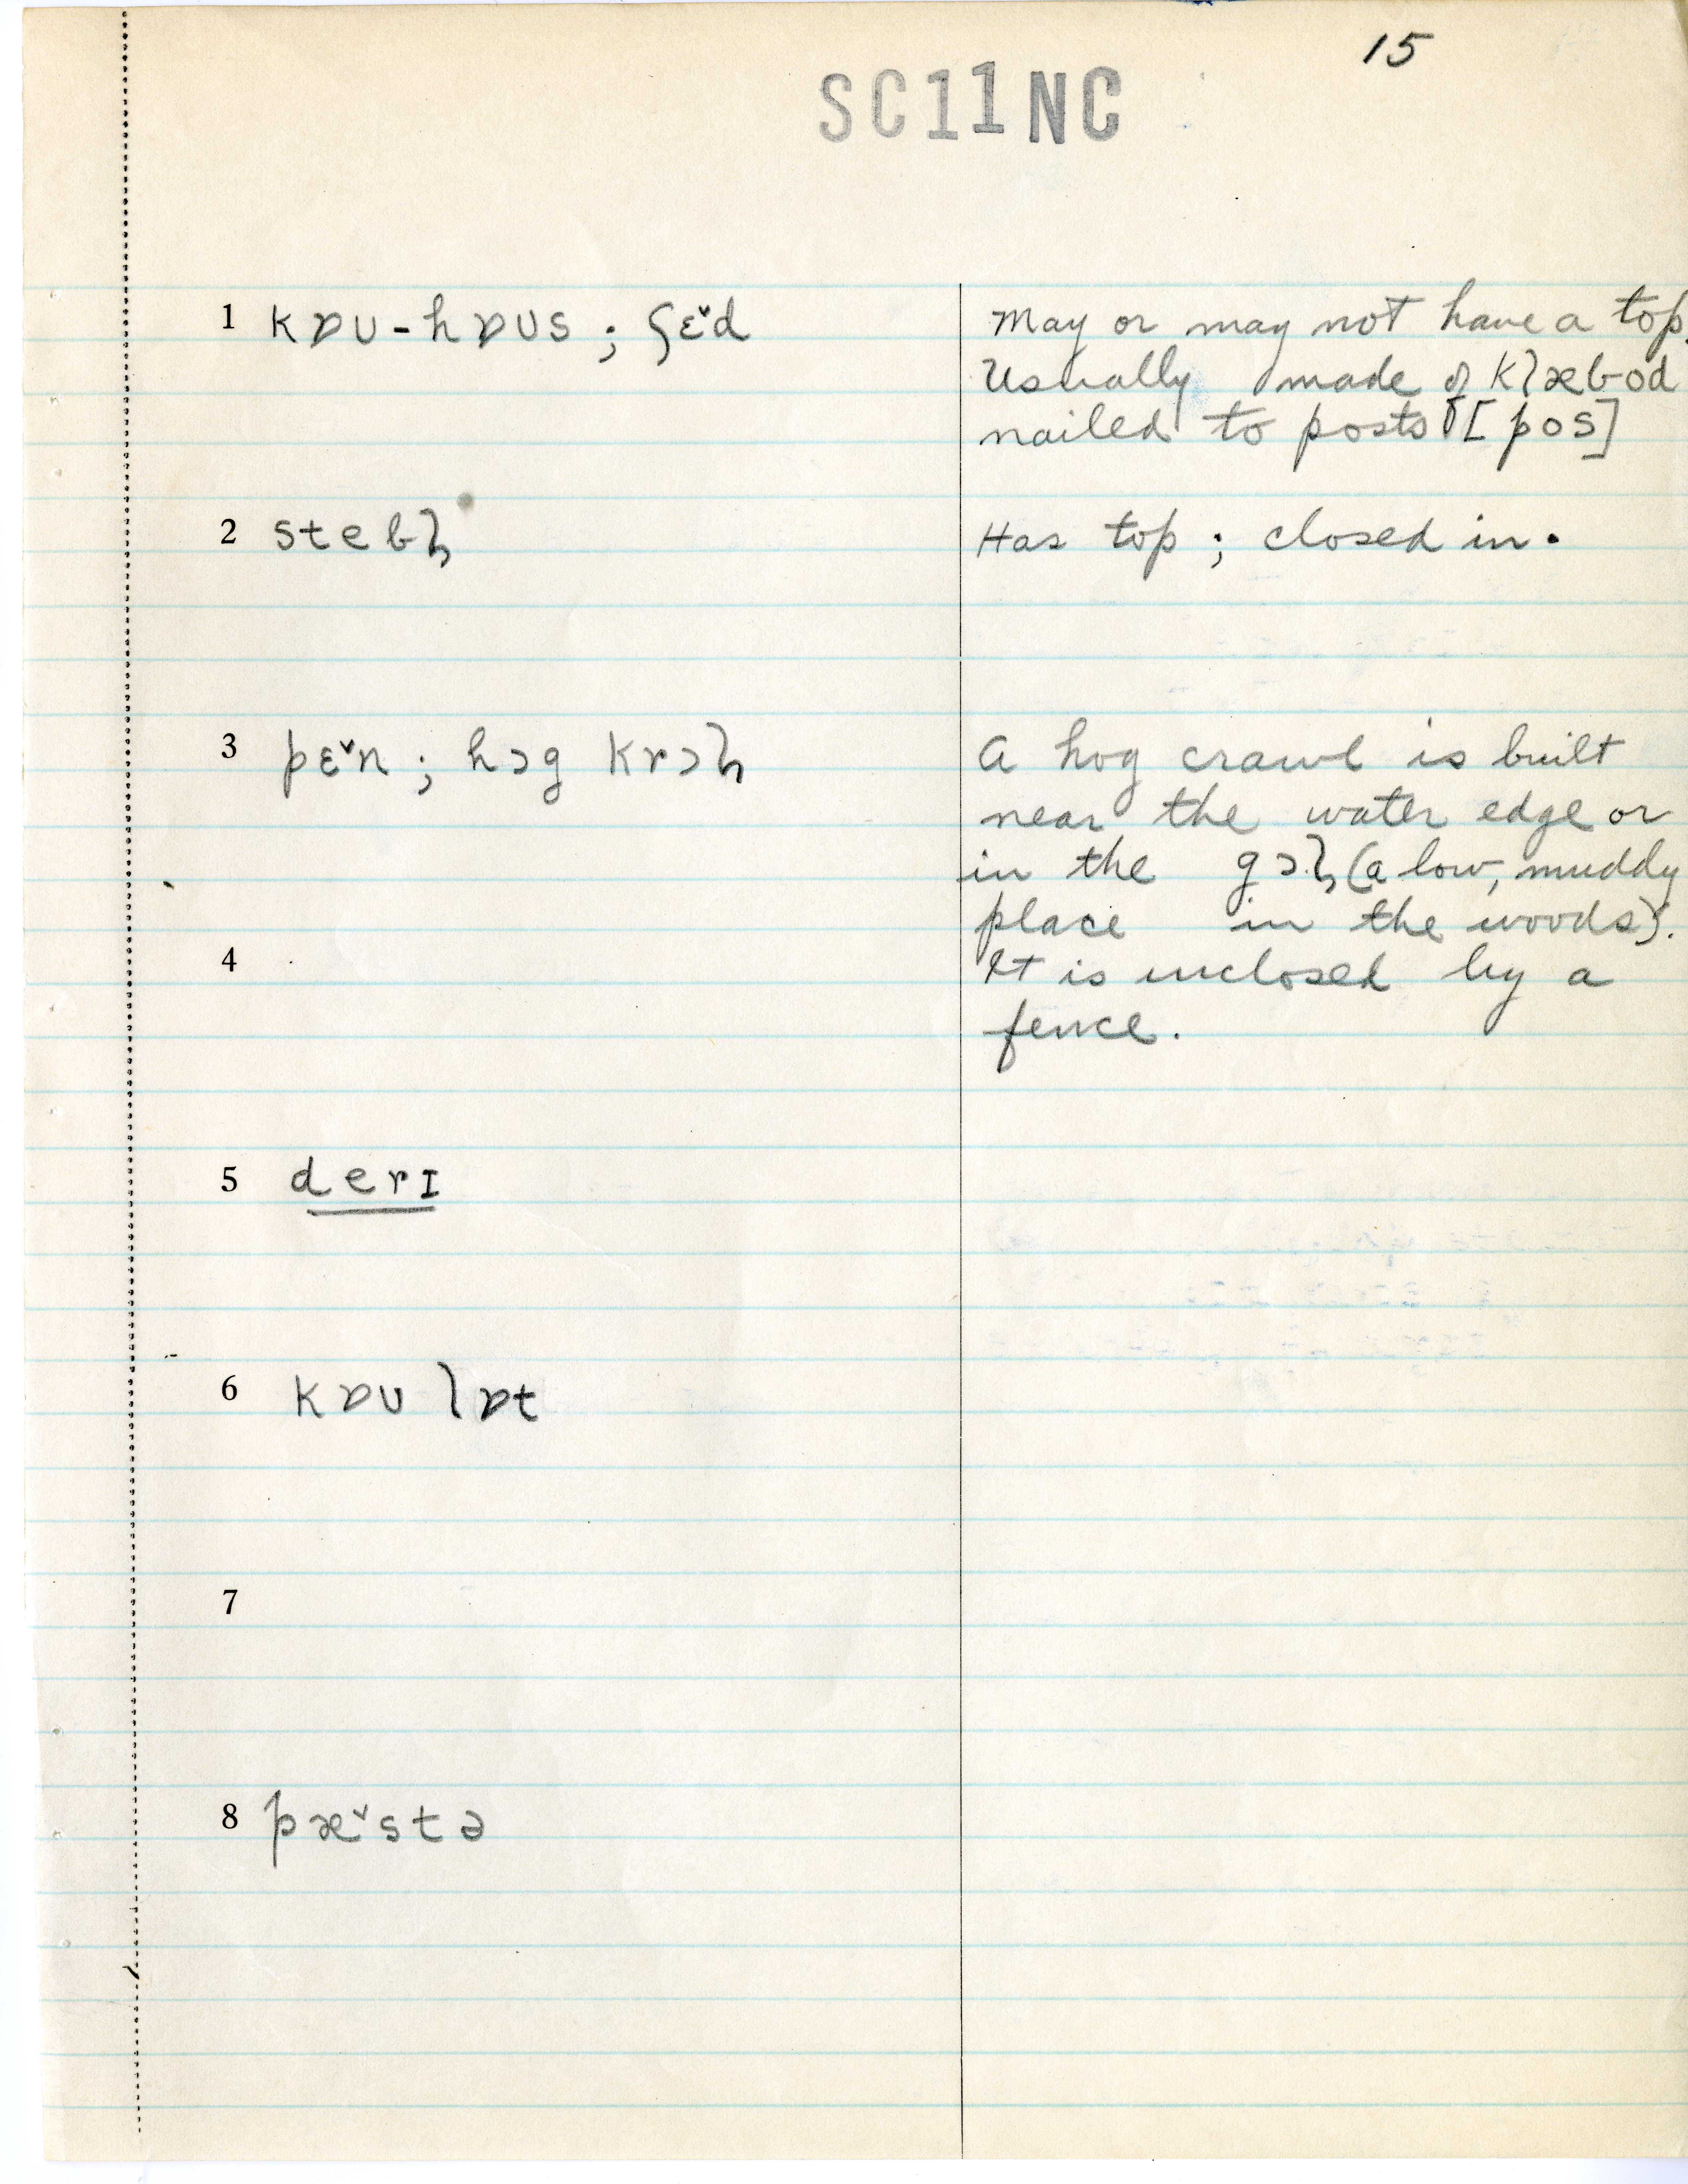 15
SC11NC
1 kɒʊ-hɒʊs ; ʃɛ˅d
May or may not have a top.
Usually made of klæbod
nailed to posts [pos]
2 stebl̩
Has top ; closed in.
3 pɛ˅n ; hɔg krɔl̩
A hog crawl is built
near the water edge or
in the gɔl̩ (a low, muddy
place in the woods).
4
It is inclosed by a
fence.
5 derɪ
6 kɒʊ lɒt
7
8 pæ˅stə